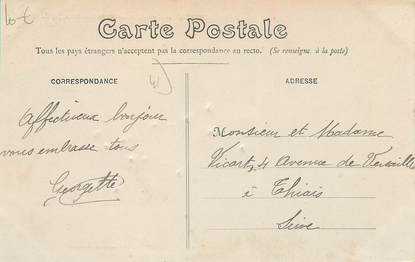 Carte Postale
Tous les pays étrangers n'acceptent pas la correspondance au recto. (Se renseigner à la poste)
CORRESPONDANCE
ADRESSE
41
Affectueux bonjour
vous embrasse tous
Georgette
Monsieur et Madame
Vicart, 4 Avenue de Versaille
à Thiais
Seine